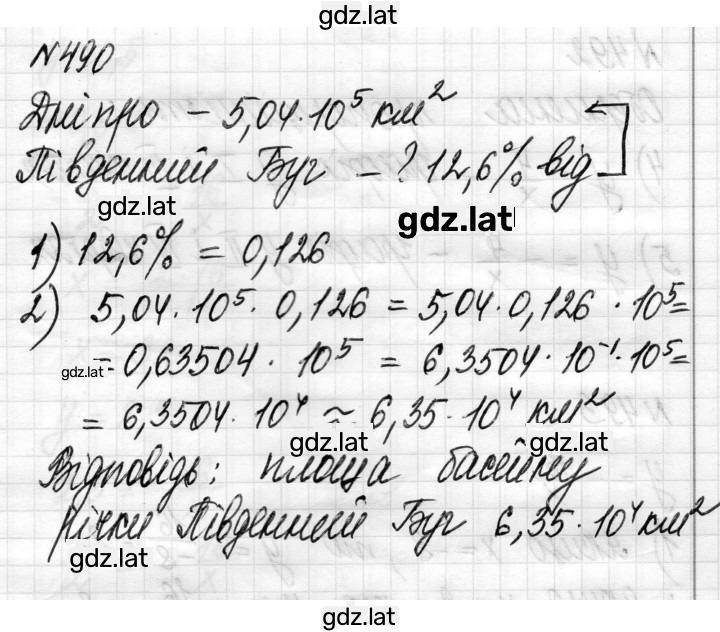 gdz.lat
№490
Дніпро – 5,04·10⁵ км²
Південний Буг – ? 12,6% від
gdz.lat
gdz.lat
1) 12,6% = 0,126
2) 5,04·10⁵·0,126 = 5,04·0,126·10⁵=
gdz.lat
=0,63504·10⁵ = 6,3504·10⁻¹·10⁵=
= 6,3504·10⁴ ≈ 6,35·10⁴ км²
gdz.lat
gdz.lat
Відповідь: площа басейну
річки Південний Буг 6,35·10⁴ км²
gdz.lat
gdz.lat